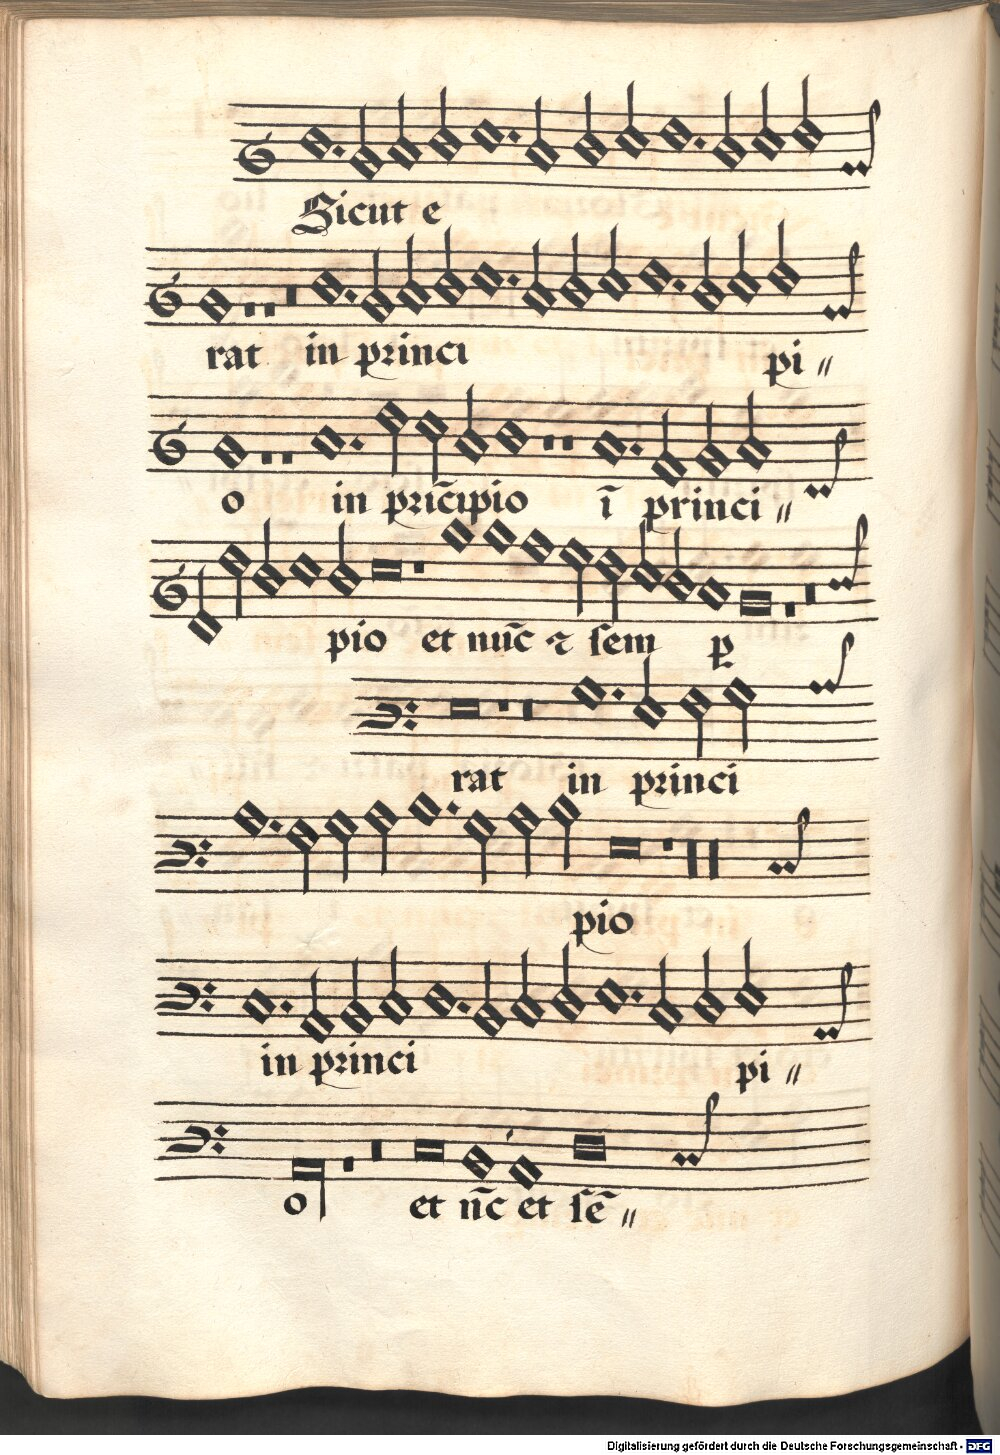 Sicut e
rat in princi pi〃
o in prīcipio ī princi〃
pio et nūc ⁊ sem ꝑ
rat in princi
pio
in princi pi〃
o et n̄c et sē〃
Digitalisierung gefördert durch die Deutsche Forschungsgemeinschaft - DFG